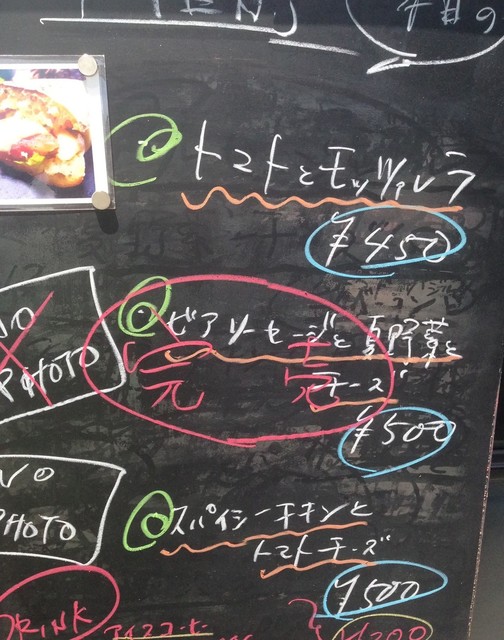 トマトとモッツァレラ
¥450
NO
PHOTO
ビアソーセージと夏野菜と
チーズ
完売
¥500
NO
PHOTO
スパイシーチキンと
トマトチーズ
¥500
DRINK
アイスコーヒー